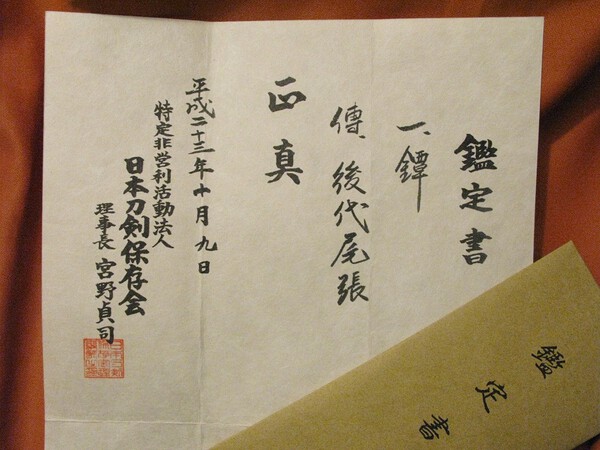 鑑定書
一、鐔
傳、後代尾張
正真
平成二十三年十月九日
特定非営利活動法人
日本刀剣保存会
理事長 宮野貞司
鑑定書